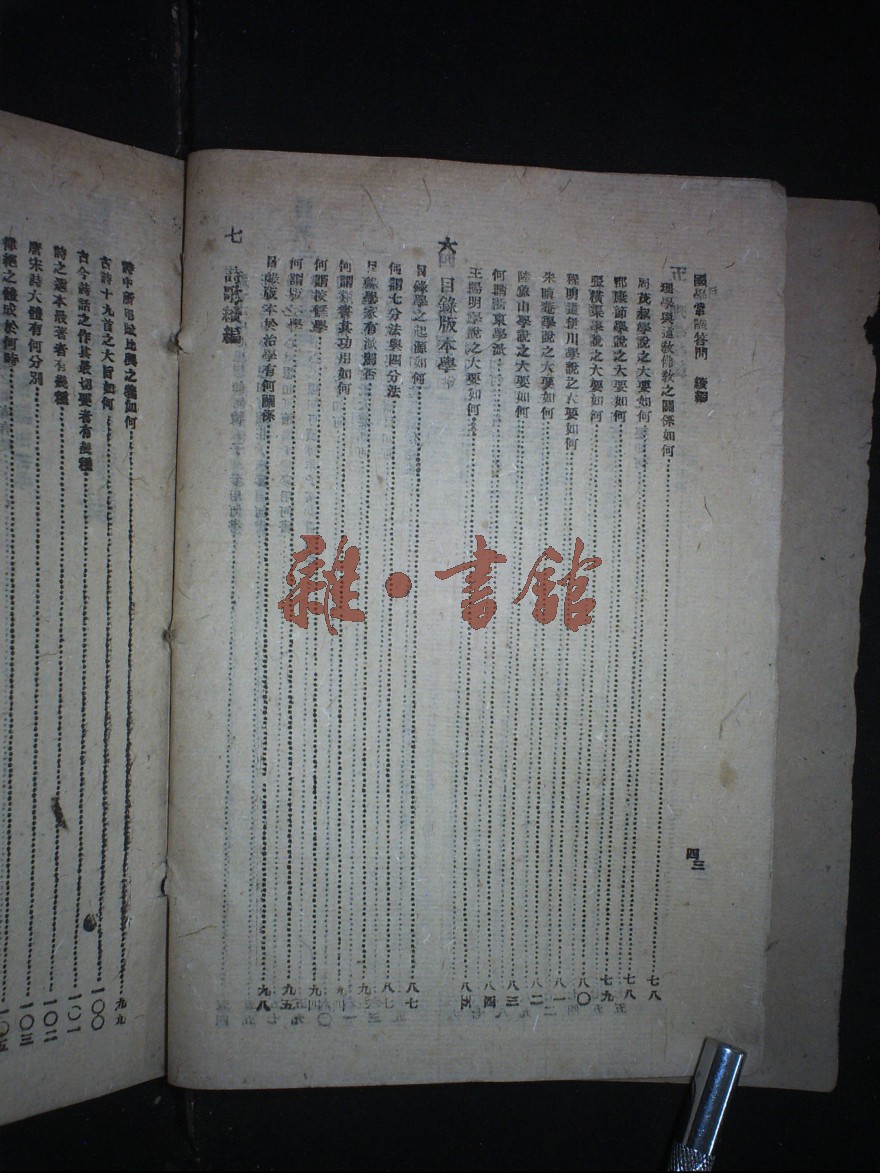 國學常識答問 續編
理學與道教佛教之關係如何 七八
周茂叔學說之大要如何 七八
邵康節學說之大要如何 七九
張橫渠學說之大要如何
程明道伊川學說之大要如何 八〇
朱晦菴學說之大要如何 八一
陸象山學說之大要如何 八二
何謂浙東學派 八三
王陽明學說之大要如何 八四
八五
六 目錄版本學
目錄學之起源如何 八七
何謂七分法與四分法 八七
目錄學家有派別否 九
何謂 書其功用如何 九
何謂校讎學 九四
何謂版本學 九五
目錄版本於治學有何關係 九八
七 詩歌續編
詩中所 比興之 如何 九九
古詩十九首之大旨如何 一〇〇
古今詩話之作其最切要者有幾種 一〇一
詩之選本最著者有幾種 一〇二
唐宋詩大體有何分別 一〇三
之 成於何時 一〇五
四三
雜·書館